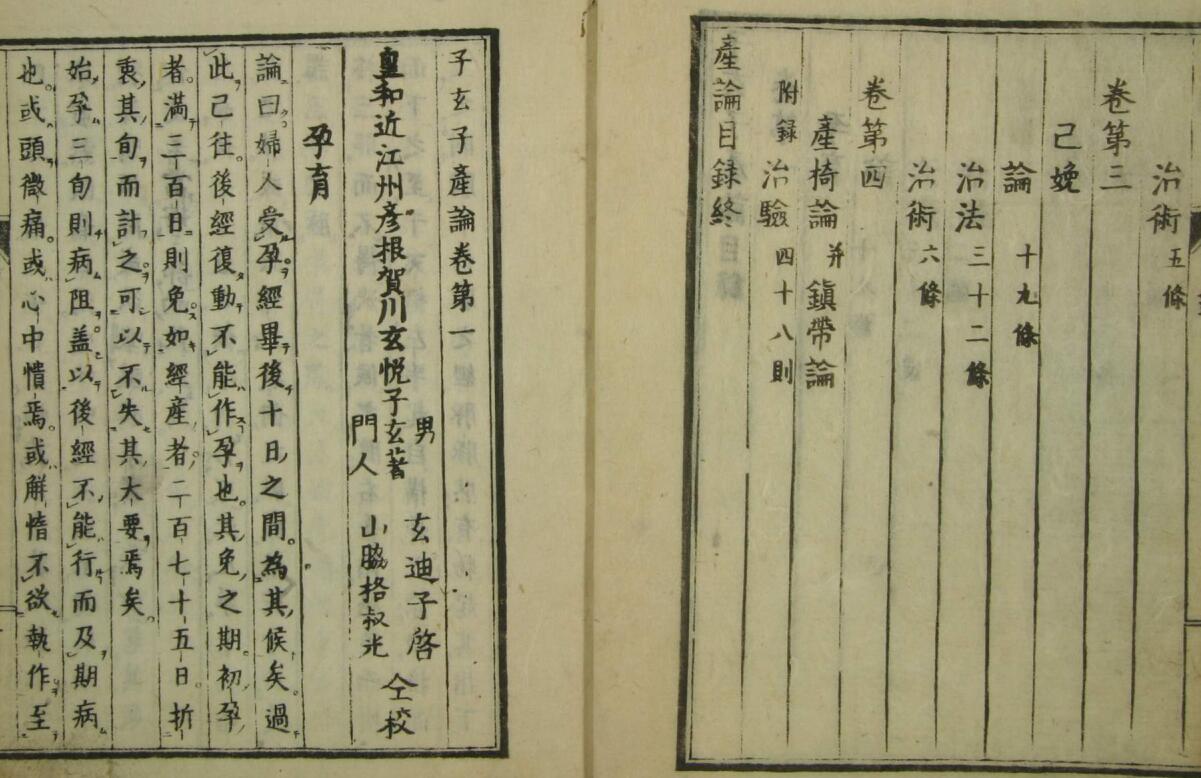 治術五條
卷第三
已娩
論 十九條
治法 三十二條
治術 六條
卷第四
產椅論并鎮帶論
附録 治驗 四十八則
產論目録終
子玄子產論卷第一
皇和近江州彥根賀川玄悦子玄著
男 玄迪子啓
門人 山脇格叔光
仝校
孕育
論曰婦人受孕經畢後十日之間為其候矣過
此已往後經復動不能作孕也其免之期初孕
者滿三百日則免如經產者二百七十五日折
衷其旬而計之可以不失其大要焉矣
始孕三旬則病阻盖以後經不能行而及期病
也或頭微痛或心中憒焉或解惰不欲執作至